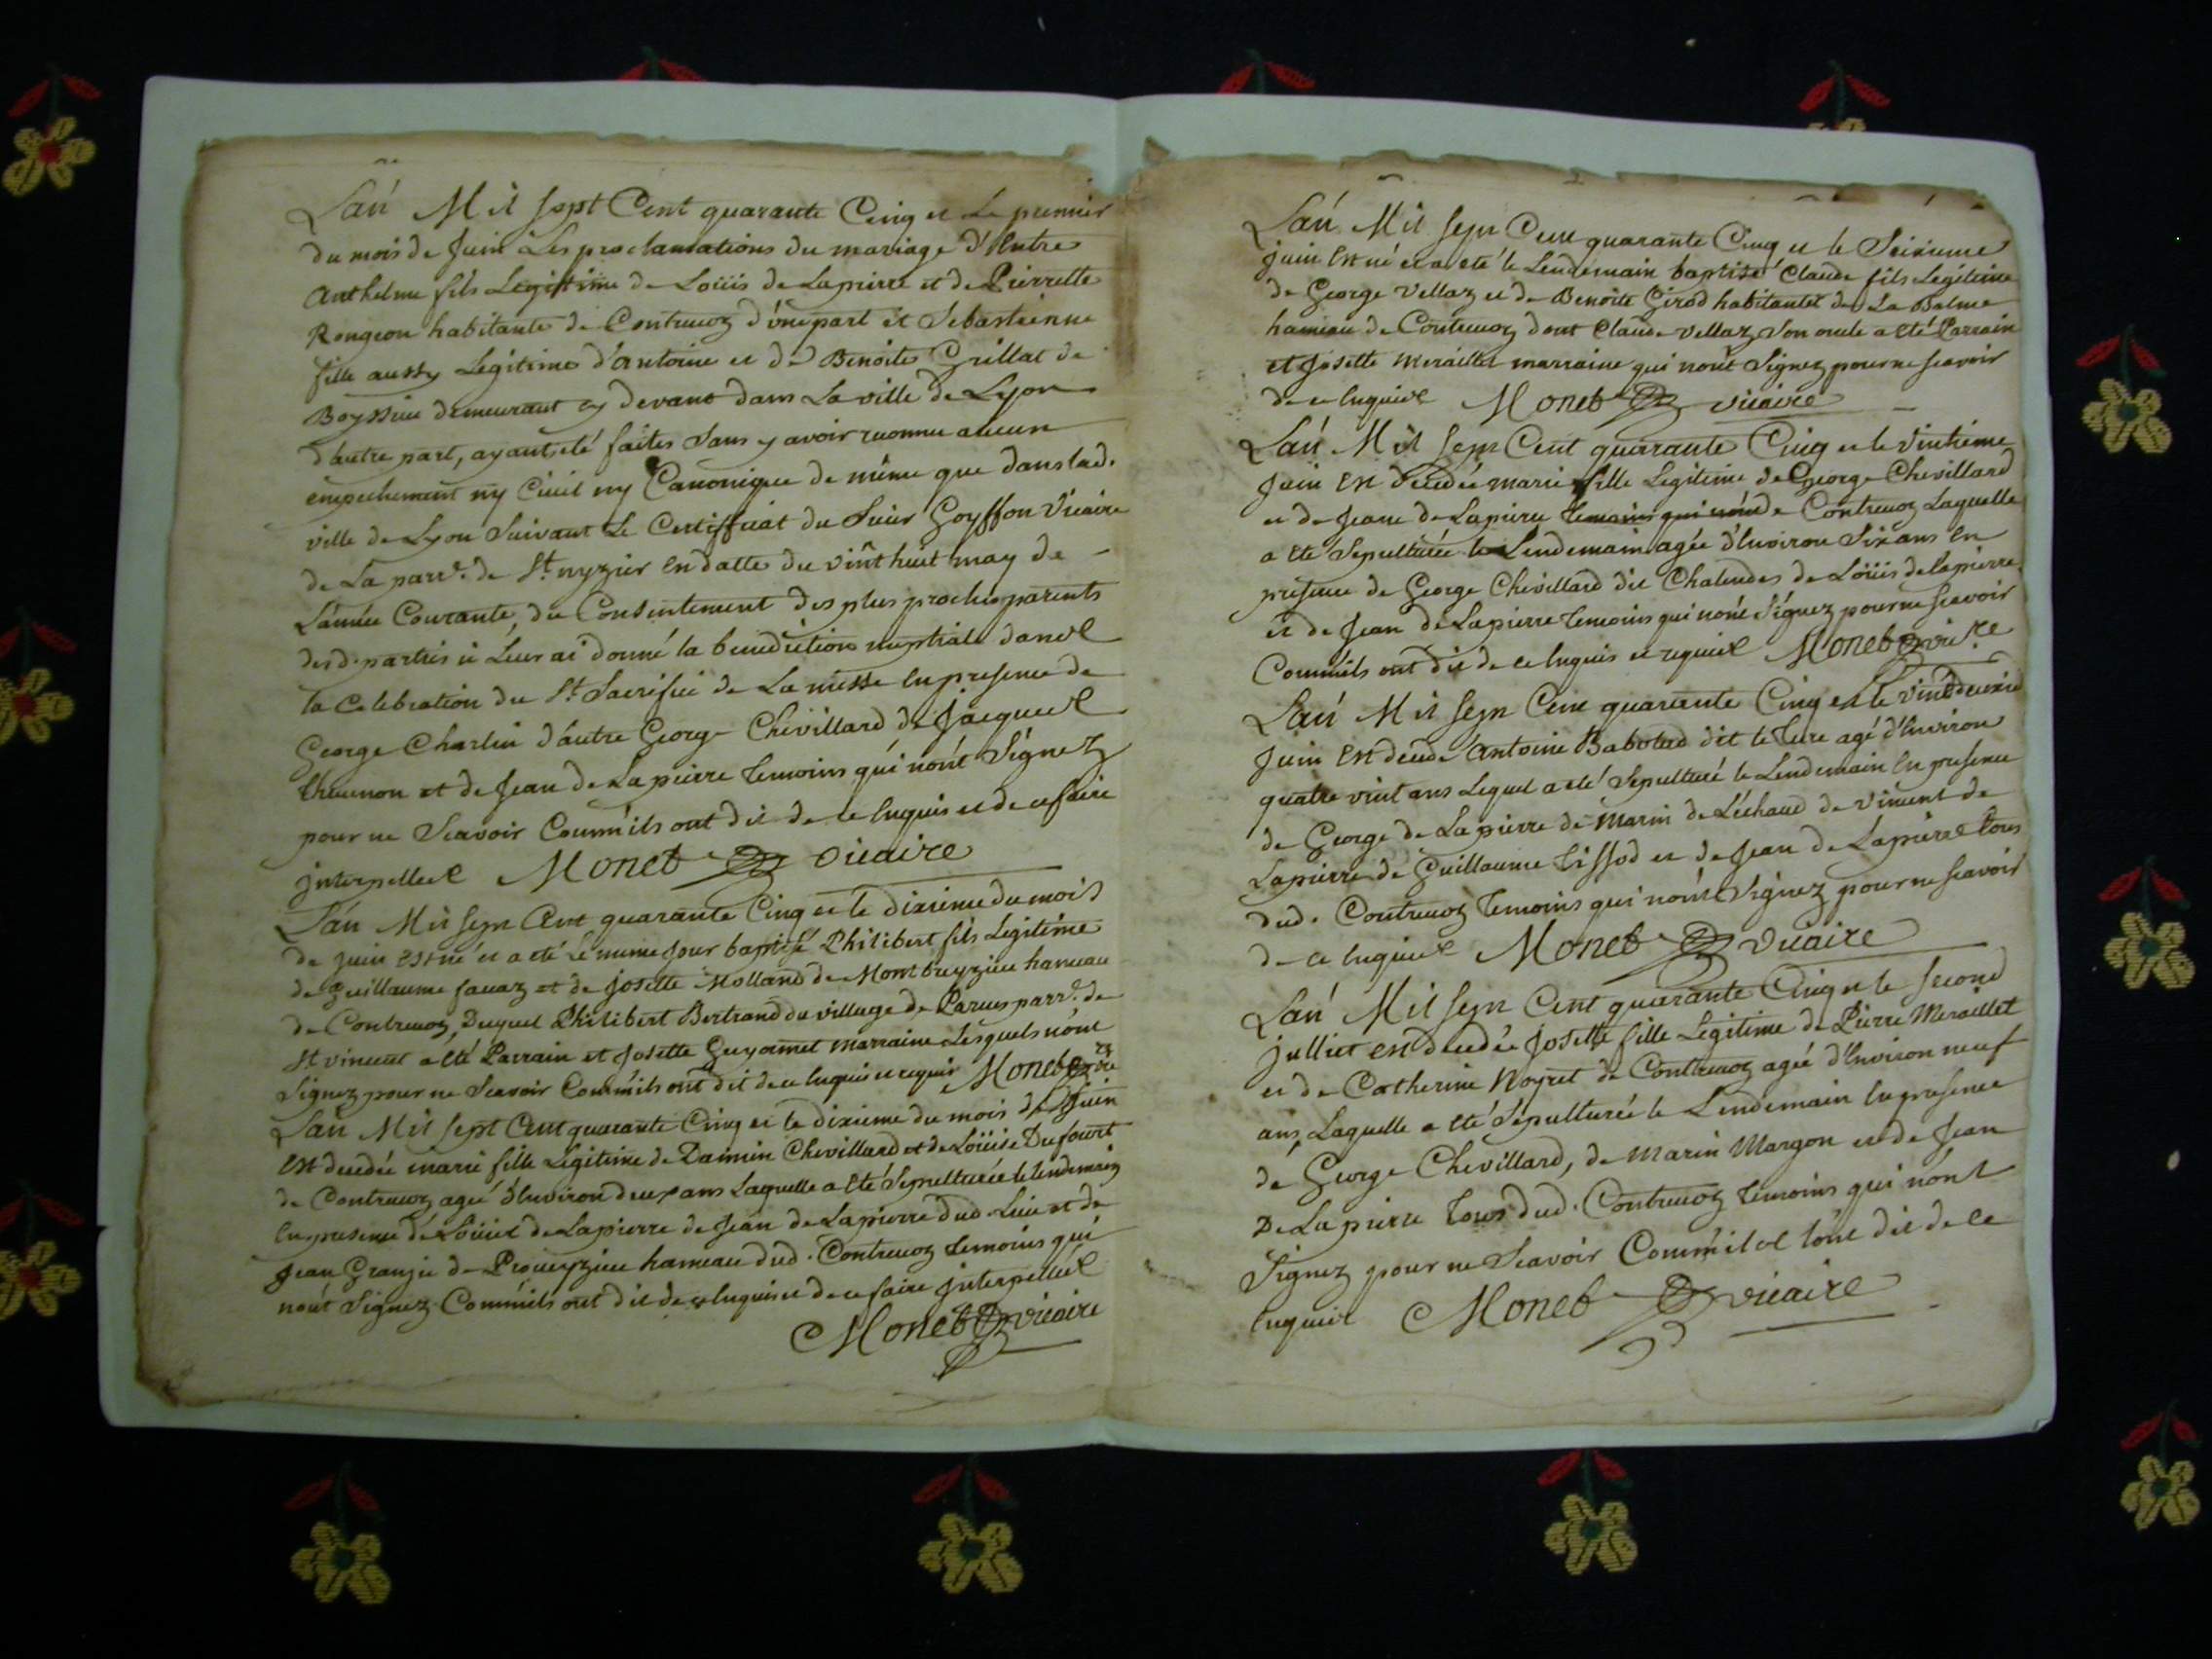 L'an Mil sept Cent quarante Cinq et Le premier
du mois de Juin Les proclamations du mariage d'Entre
Anthelme fils Legittime de Loüis de Lapierre et de Pierrette
Rongeon habitants de Contrevoz d'une part et Sebastienne
fille aussy Legitime d'antoine et de Benoite Grillat de
Boyssieu demeurant cy devant dans La ville de Lyon
d'autre part, ayant eté faites Sans y avoir reconnu aucun
empechement ny Civil ny Canonique de même que dans lad.
ville de Lyon Suivant Le Certifficat du Sieur Goyffon Vicaire
de La parr.e de St. nyzier en datte du vint huit may de
L'année Courante, du Consentement des plus proches parents
desd. parties je Leur ai donné la benediction nuptiale dans
la Celebration du St. Sacrifice de La messe en presence de
George Charlin d'autre George Chevillard de Jacques
Thevenon et de Jean de Lapierre temoins qui n'ont Signez
pour ne Scavoir Comm'ils ont dit de ce Enquis et de ce faire
jnterpelles Monet vicaire
L'an Mil sept Cent quarante Cinq et le dixieme du mois
de juin est né et a eté Le meme jour baptisé Philibert fils Legitime
de Guillaume favaz et de josette Molland de Montbreyzieu hameau
de Contrevoz, Duquel Philibert Bertrand du village de Parves parr.e de
St vincent a eté Parrain et Josette Guyonnet marraine Lesquels n'ont
Signez pour ne Scavoir Comm'ils ont dit de ce enquis et requis Monet vic.re
L'an Mil sept Cent quarante Cinq et le dixieme du mois de Juin
Est decedée marie fille Legitime de Damien Chevillard et de Loüise Dufourt
de Contrevoz ageé d'Environ deux ans Laquelle a eté Sepulturée le lendemain
En presence de Loüis de Lapierre de Jean de Lapierre dud. Lieu et de
Jean Granjie de Proveyzieu hameau dud. Contrevoz temoins qui
n'ont Signez Comm'ils ont dit de ce enquis et de ce faire jnterpellés
Monet vicaire
L'an Mil Sept Cent quarante Cinq et le Seizieme
juin Est né et a eté le Lendemain baptisé Claude fils Legitime
de George Vellaz et de Benoite Girod habitants de La Balme
hameau de Contrevoz dont Claude Vellaz Son oncle a eté Parrain
et Josette Meraillet marraine qui n'ont Signez pour ne scavoir
de ce Enquis Monet vicaire
L'an Mil Sept Cent quarante Cinq et le vintieme
Juin Est decedée marie fille Legitime de George Chevillard
et de Jeane de Lapierre temoins qui n'ont de Contrevoz Laquelle
a eté Sepulturée le Lendemain agée d'Environ Six ans En
presence de George Chevillard dit Chalendes de Loüis de lapierre
et de Jean de Lapierre temoins qui n'ont Signez pour ne scavoir
Comm'ils ont dit de ce Enquis et requis Monet vic.re
L'an Mil Sept Cent quarante Cinq et le vint deuxie
Juin Est decedé Antoine Babolad dit le Ture agé d'Environ
quatre vint ans Lequel a eté Sepulturé le Lendemain En presence
de George de Lapierre de Marin de Léchaud de Vincent de
Lapierre de Guillaume Tissod et de Jean de Lapierre tous
dud. Contrevoz temoins qui n'ont Signez pour ne scavoir
de ce Enquis Monet vicaire
L'an Mil Sept Cent quarante Cinq et le second
julliet est decedée Josette fille Legitime de Pierre Meraillet
et de Catherine Noyret de Contrevoz agée d'Environ neuf
ans Laquelle a eté Sepulturée le Lendemain En presence
de George Chevillard, de Marin Margon et de Jean
De Lapierre tous dud. Contrevoz temoins qui n'ont
Signez pour ne Scavoir Comm'ils l'ont dit de ce
Enquis Monet vicaire